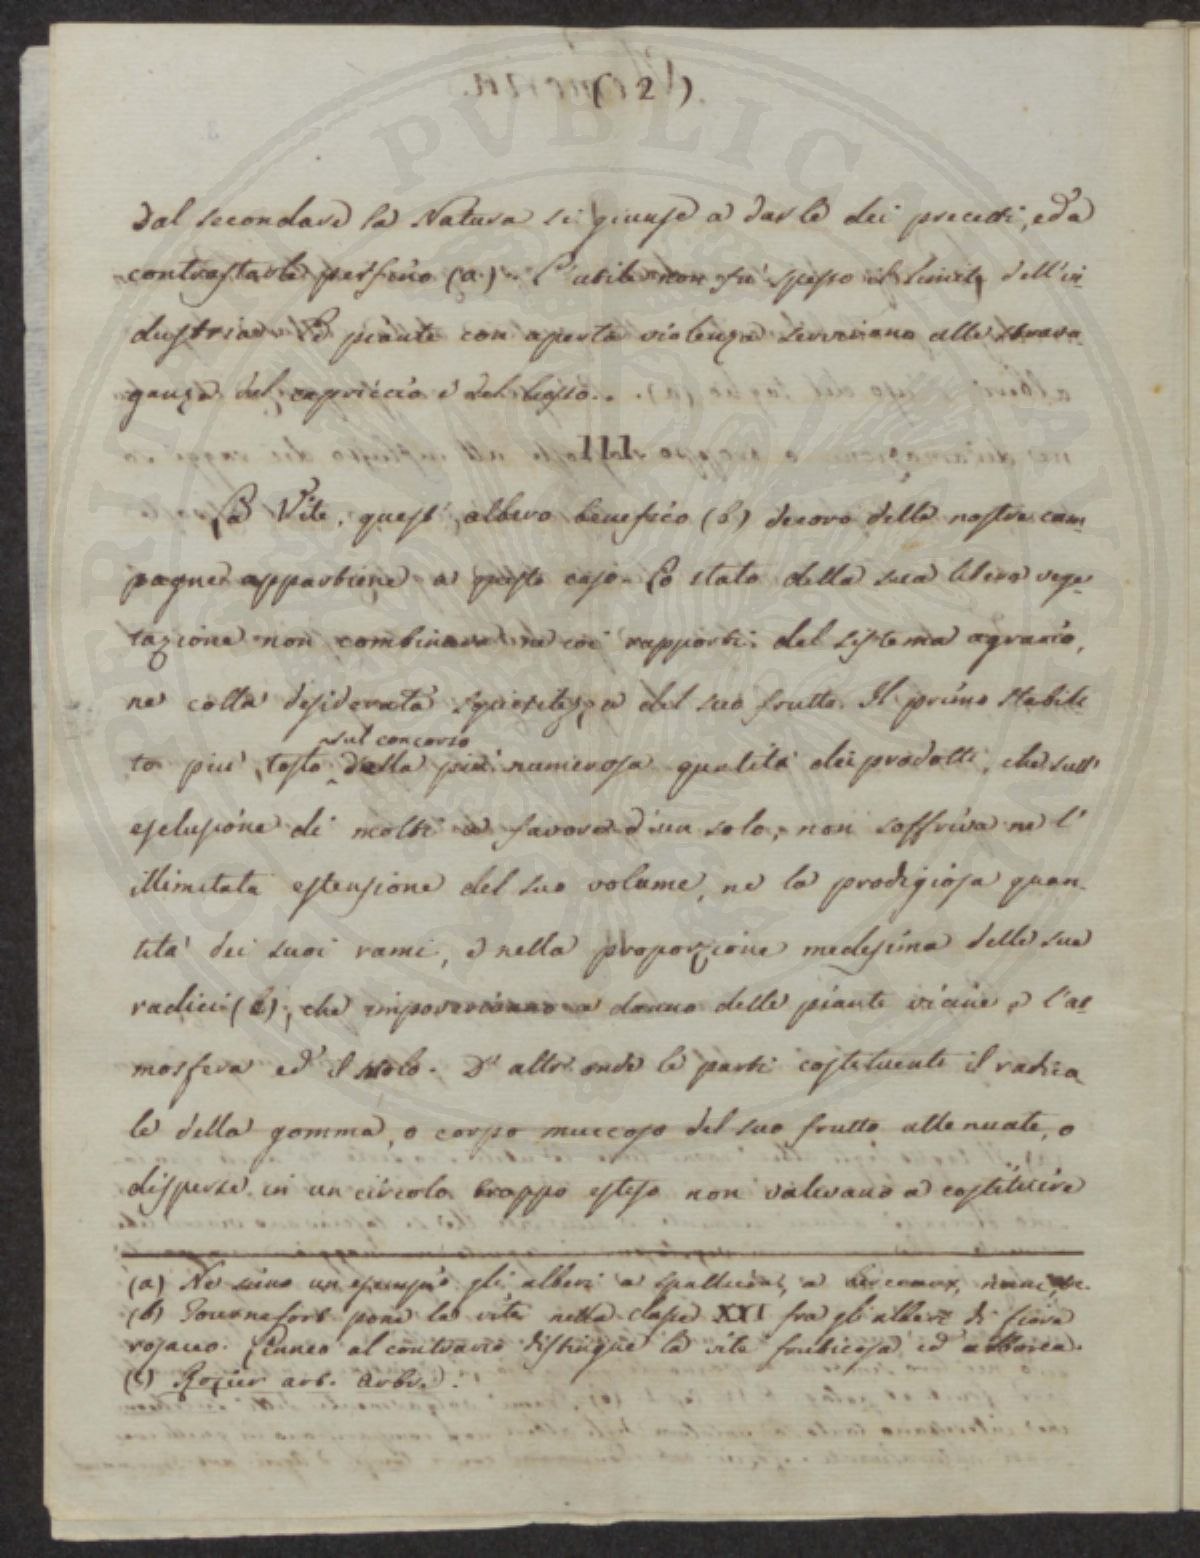 (2).
dal secondare la Natura si giunse a darle dei precetti, ed a
contrastarla persino (a). L'utile non fu spesso il limite dell'in
dustria. Le piante con aperta violenza servirono alle strava
ganze del capriccio e del lusso..
III.
La Vite, quest'albero benefico (b) decoro delle nostre cam
pagne appartiene a questo caso. Lo stato della sua libera vege
tazione non combinava ne coi rapporti del sistema agrario,
ne colla desiderata squisitezza del suo frutto. Il primo stabili
sul concorso
to più tosto dalla più numerosa qualità dei prodotti, che sull'
esclusione di molti a favore d'un solo, non soffriva ne l'
illimitata estensione del suo volume, ne la prodigiosa quan
tità dei suoi rami, e nella proporzione medesima delle sue
radici (c), che impoverivano a danno delle piante vicine, e l'at
mosfera ed il suolo. D'altronde le parti costituenti il radica
le della gomma, o corpo muccoso del suo frutto attenuate, o
disperse in un circolo troppo esteso non valevano a costituire
(a) Ne sono un esempio gli alberi a spalliera, a
(b) Tournefort pone la vite nella classe XXI fra gli alberi di fiore
rosaceo. Linneo al contrario distingue la vite fruticosa ed arborea.
(c) Rozier art. Arbre.